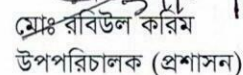 মোঃ রবিউল করিম
উপপরিচালক (প্রশাসন)